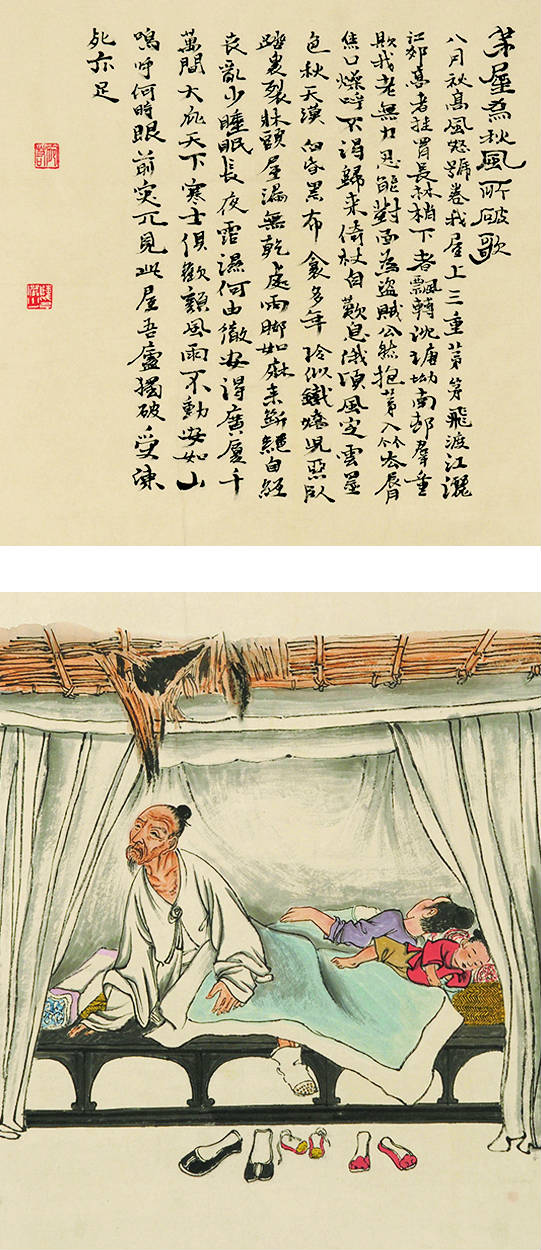 茅屋為秋風所破歌
八月秋高風怒號卷我屋上三重茅茅飛渡江灑
江郊高者挂罥長林梢下者飄轉沈塘坳南邨羣童
欺我老無力忍能對面為盜賊公然抱茅入竹去脣
焦口燥呼不得歸來倚杖自歎息俄頃風定雲墨
色秋天漠漠向昏黑布衾多年冷似鐵嬌兒惡臥
踏裏裂牀頭屋漏無乾處雨腳如麻未斷絕自經
喪亂少睡眠長夜霑濕何由徹安得廣廈千
萬間大庇天下寒士俱歡顏風雨不動安如山
嗚呼何時眼前突兀見此屋吾廬獨破受凍
死亦足